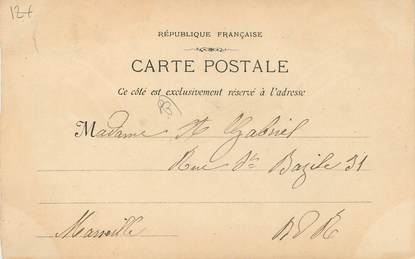 12+
RÉPUBLIQUE FRANÇAISE
CARTE POSTALE
Ce côté est exclusivement réservé à l'adresse
Madame St Gabriel
Rue St Bazile 31
Marseille